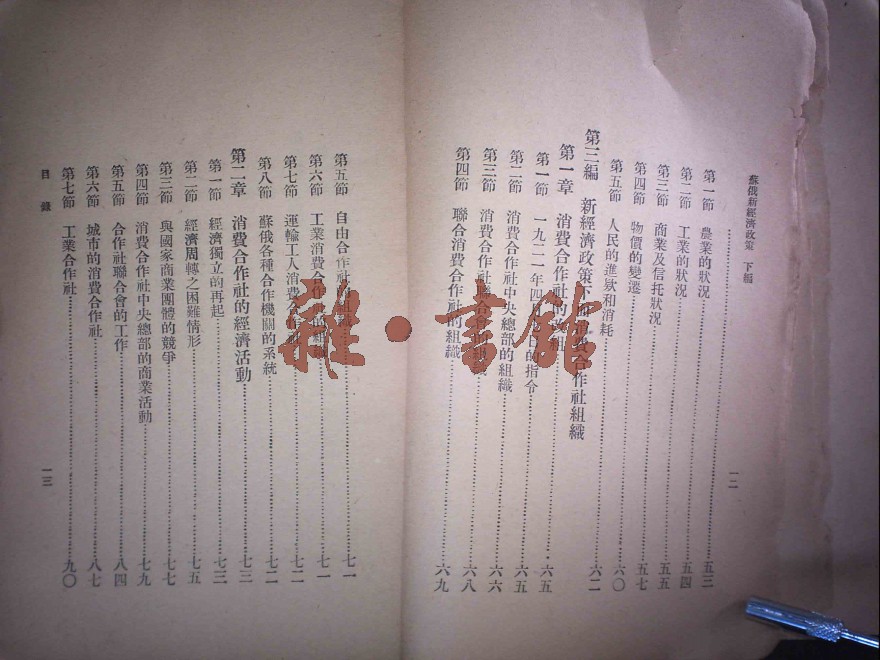 蘇俄新經濟政策 下編
一二
第一節 農業的狀況 五三
第二節 工業的狀況 五四
第三節 商業及信托狀況 五五
第四節 物價的變遷 五七
第五節 人民的進欵和消耗 六〇
第三編 新經濟政策下 消費合作社組織 六二
第一章 消費合作社的
第一節 一九二一年四月 的指令 六五
第二節 消費合作社中央總部的組織 六五
第三節 消費合作社 六六
第四節 聯合消費合作社的組織 六八
六九
第五節 自由合作社的 七一
第六節 工業消費合作 的組織 七一
第七節 運輸工人消費合作社 七二
第八節 蘇俄各種合作機關的系統 七二
第二章 消費合作社的經濟活動 七三
第一節 經濟獨立的再起 七三
第二節 經濟周轉之困難情形 七五
第三節 與國家商業團體的競爭 七七
第四節 消費合作社中央總部的商業活動 七九
第五節 合作社聯合會的工作 八四
第六節 城市的消費合作社 八七
第七節 工業合作社 九〇
目錄
一三
雜·書館